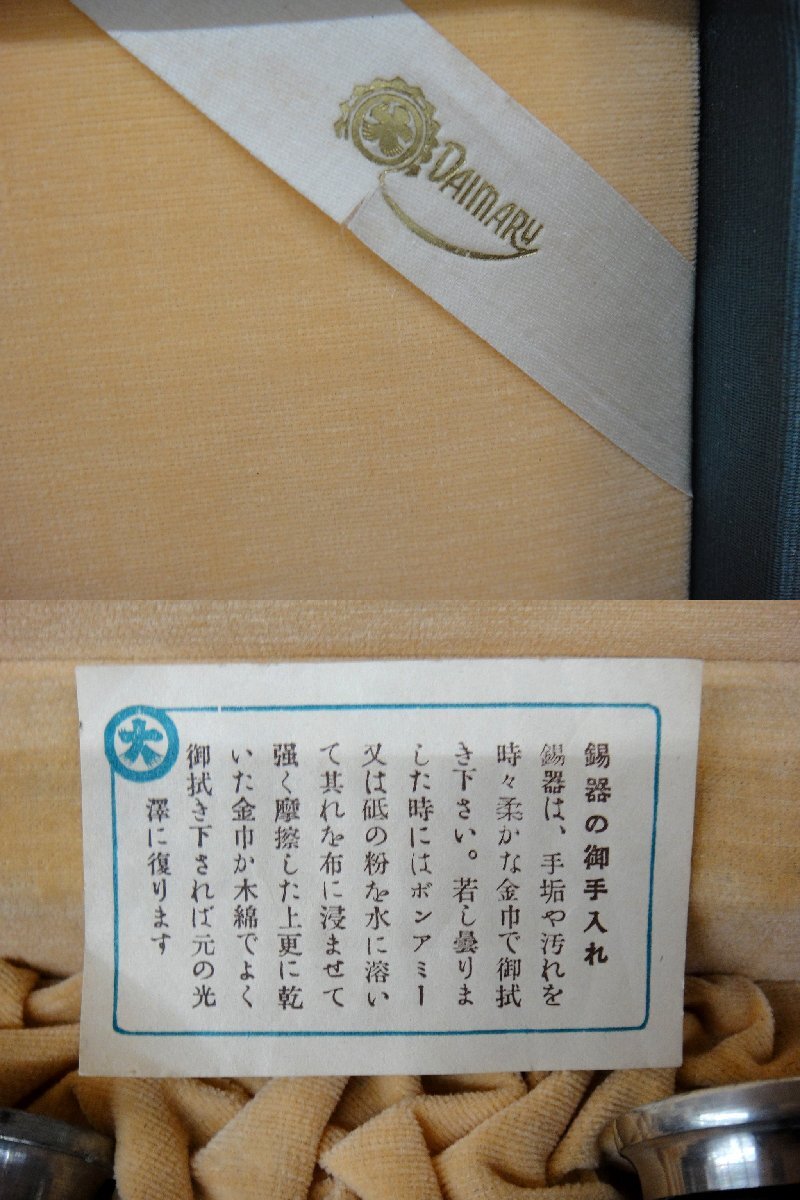 DAIMARU
大
錫器の御手入れ
錫器は、手垢や汚れを
時々柔かな金巾で御拭
き下さい。若し曇りま
した時にはボンアミー
又は砥の粉を水に溶い
て其れを布に浸ませて
强く摩擦した上更に乾
いた金巾か木綿でよく
御拭き下されば元の光
澤に復ります